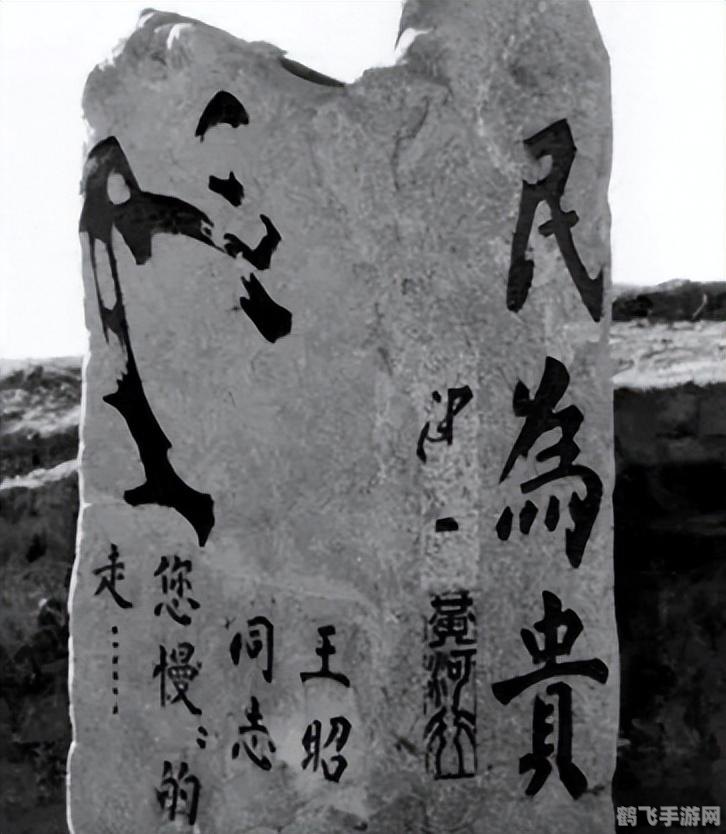 民為貴
一 黃河
王昭
同志
您慢〻的
走........
鹤飞手游网